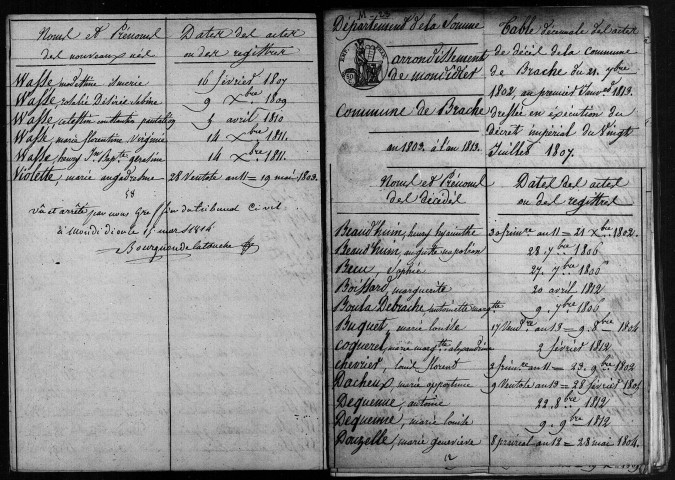 Noms et Prénoms
des nouveaux nés
Dates des actes
ou des registres
Wasse modestine ismerie 16 février 1807
Wasse rosalie Désirée Sabine 9 Xbre 1809
Wasse 5 avril 1810
Wasse marie florentine Virginie 14 Xbre 1811.
Wasse henry Jn Bapte 14 Xbre 1811.
Violette, marie 28 Ventose an 11 = 19 mai 1803.
58
Vû et arrêté par nous Greffier du tribunal Civil
à Mondidier le 15 mars 1814
Département de la Somme
arrondissement
de mondidier
Commune de Brache
an 1802. à l'an 1813.
Table décennale des actes
de décès de la commune
de Brache du 21. 7bre
1802 au premier Janver 1813.
dressée en exécution du
Décret impérial du Vingt
Juillet 1807.
Noms et Prénoms
des décédés
Dates des actes
ou des registres
Beaud'huin, henry hyacinthe 30 frimre an 11 = 21 Xbre 1802.
Beaud'huin, auguste napoléon 28. 7bre 1806
Beeu, Sophie 27. 7bre 1806
Boissard, marguerite 20 avril 1812
Boula Debrache, antoinette margtte 9. 7bre 1806
Buquet, marie louise 17 Vendre an 13 = 9. 8bre 1804
Coquerel, marie margtte alexandrine 2 février 1812
Chevrier, louis florent 2 frimre an 11 = 23. 9bre 1802
Dacheux, marie opportune 9 Ventose an 13 = 28 février 1805
Dequenne, antoine 22. 8bre 1812
Dequenne, marie louise 9. 9bre 1812
Douzelle, marie geneviève 8 prairial an 12 = 28 mai 1804.
12